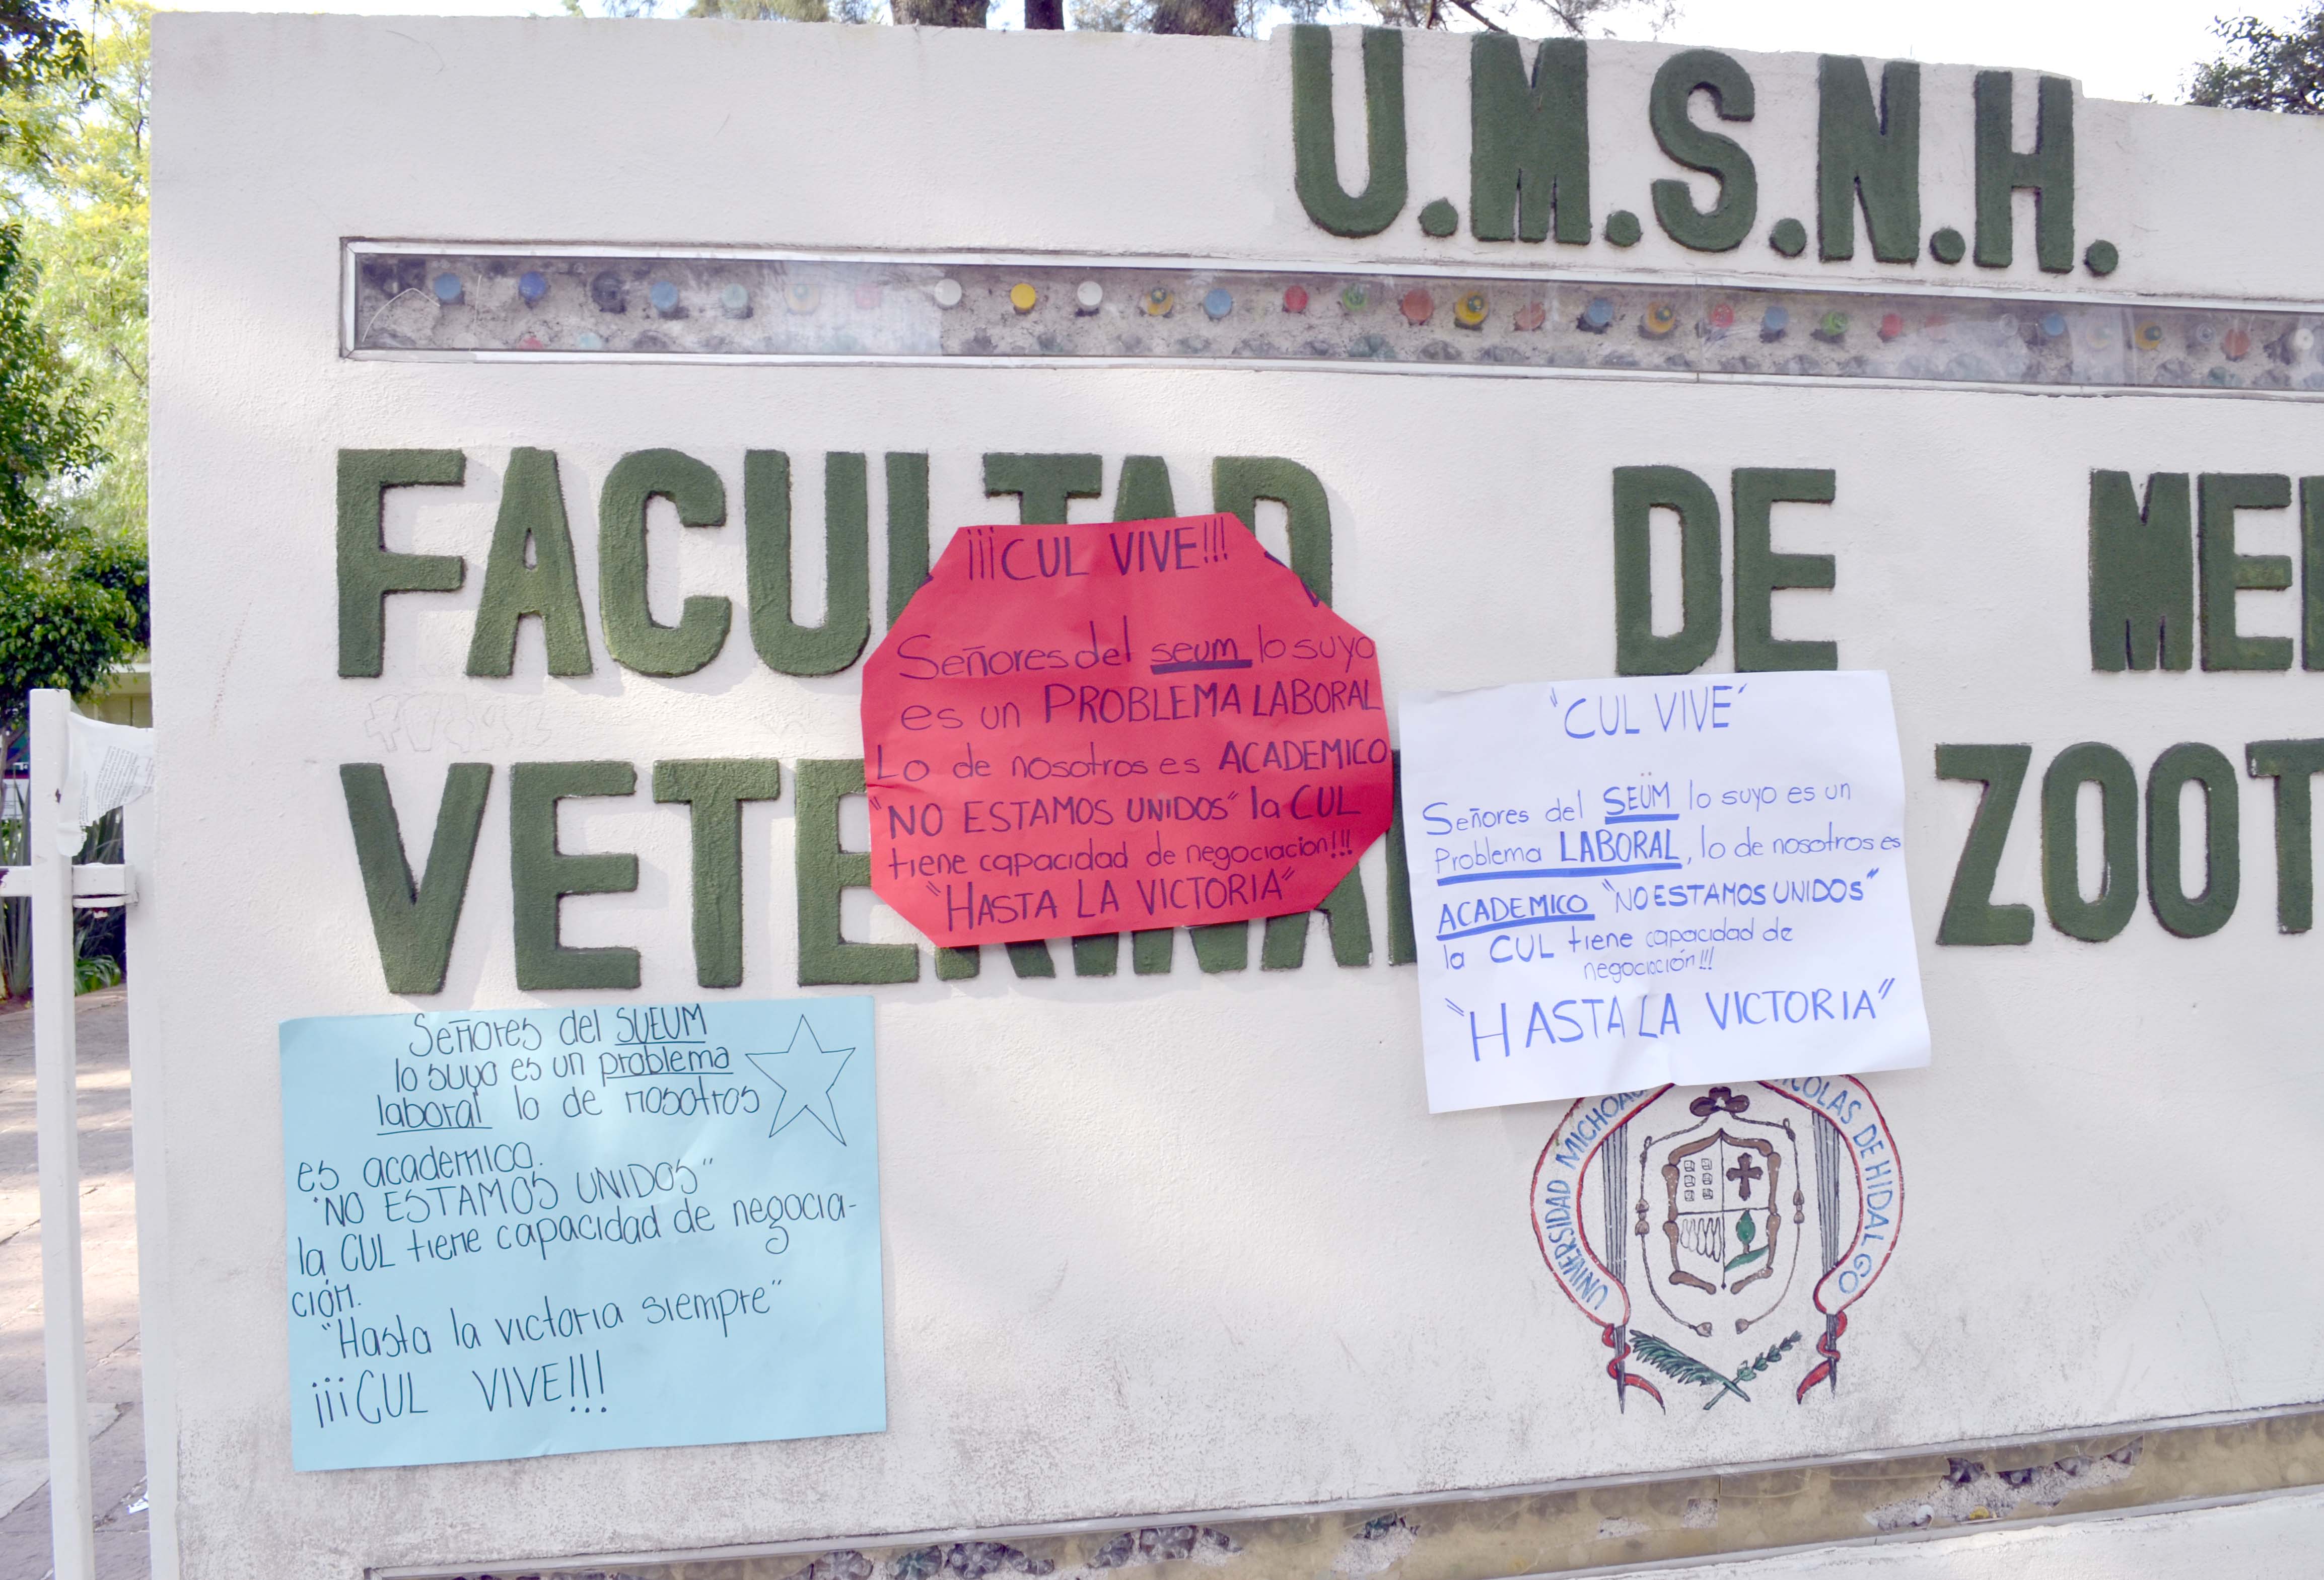 U.M.S.N.H.
FACULTAD DE ME
VETERINA ZOOT
¡¡¡CUL VIVE!!!
Señores del seum lo suyo
es un PROBLEMA LABORAL
Lo de nosotros es ACADEMICO
"NO ESTAMOS UNIDOS" la CUL
tiene capacidad de negociacion!!!
"HASTA LA VICTORIA"
"CUL VIVE"
Señores del SEÜM lo suyo es un
Problema LABORAL, lo de nosotros es
ACADEMICO "NO ESTAMOS UNIDOS"
la CUL tiene capacidad de
negociación!!!
"HASTA LA VICTORIA"
Señores del SUEUM
lo suyo es un problema
laboral lo de nosotros
es academico.
"NO ESTAMOS UNIDOS"
la CUL tiene capacidad de negocia-
ción.
"Hasta la victoria siempre"
¡¡¡CUL VIVE!!!
UNIVERSIDAD MICHOA COLAS DE HIDALGO